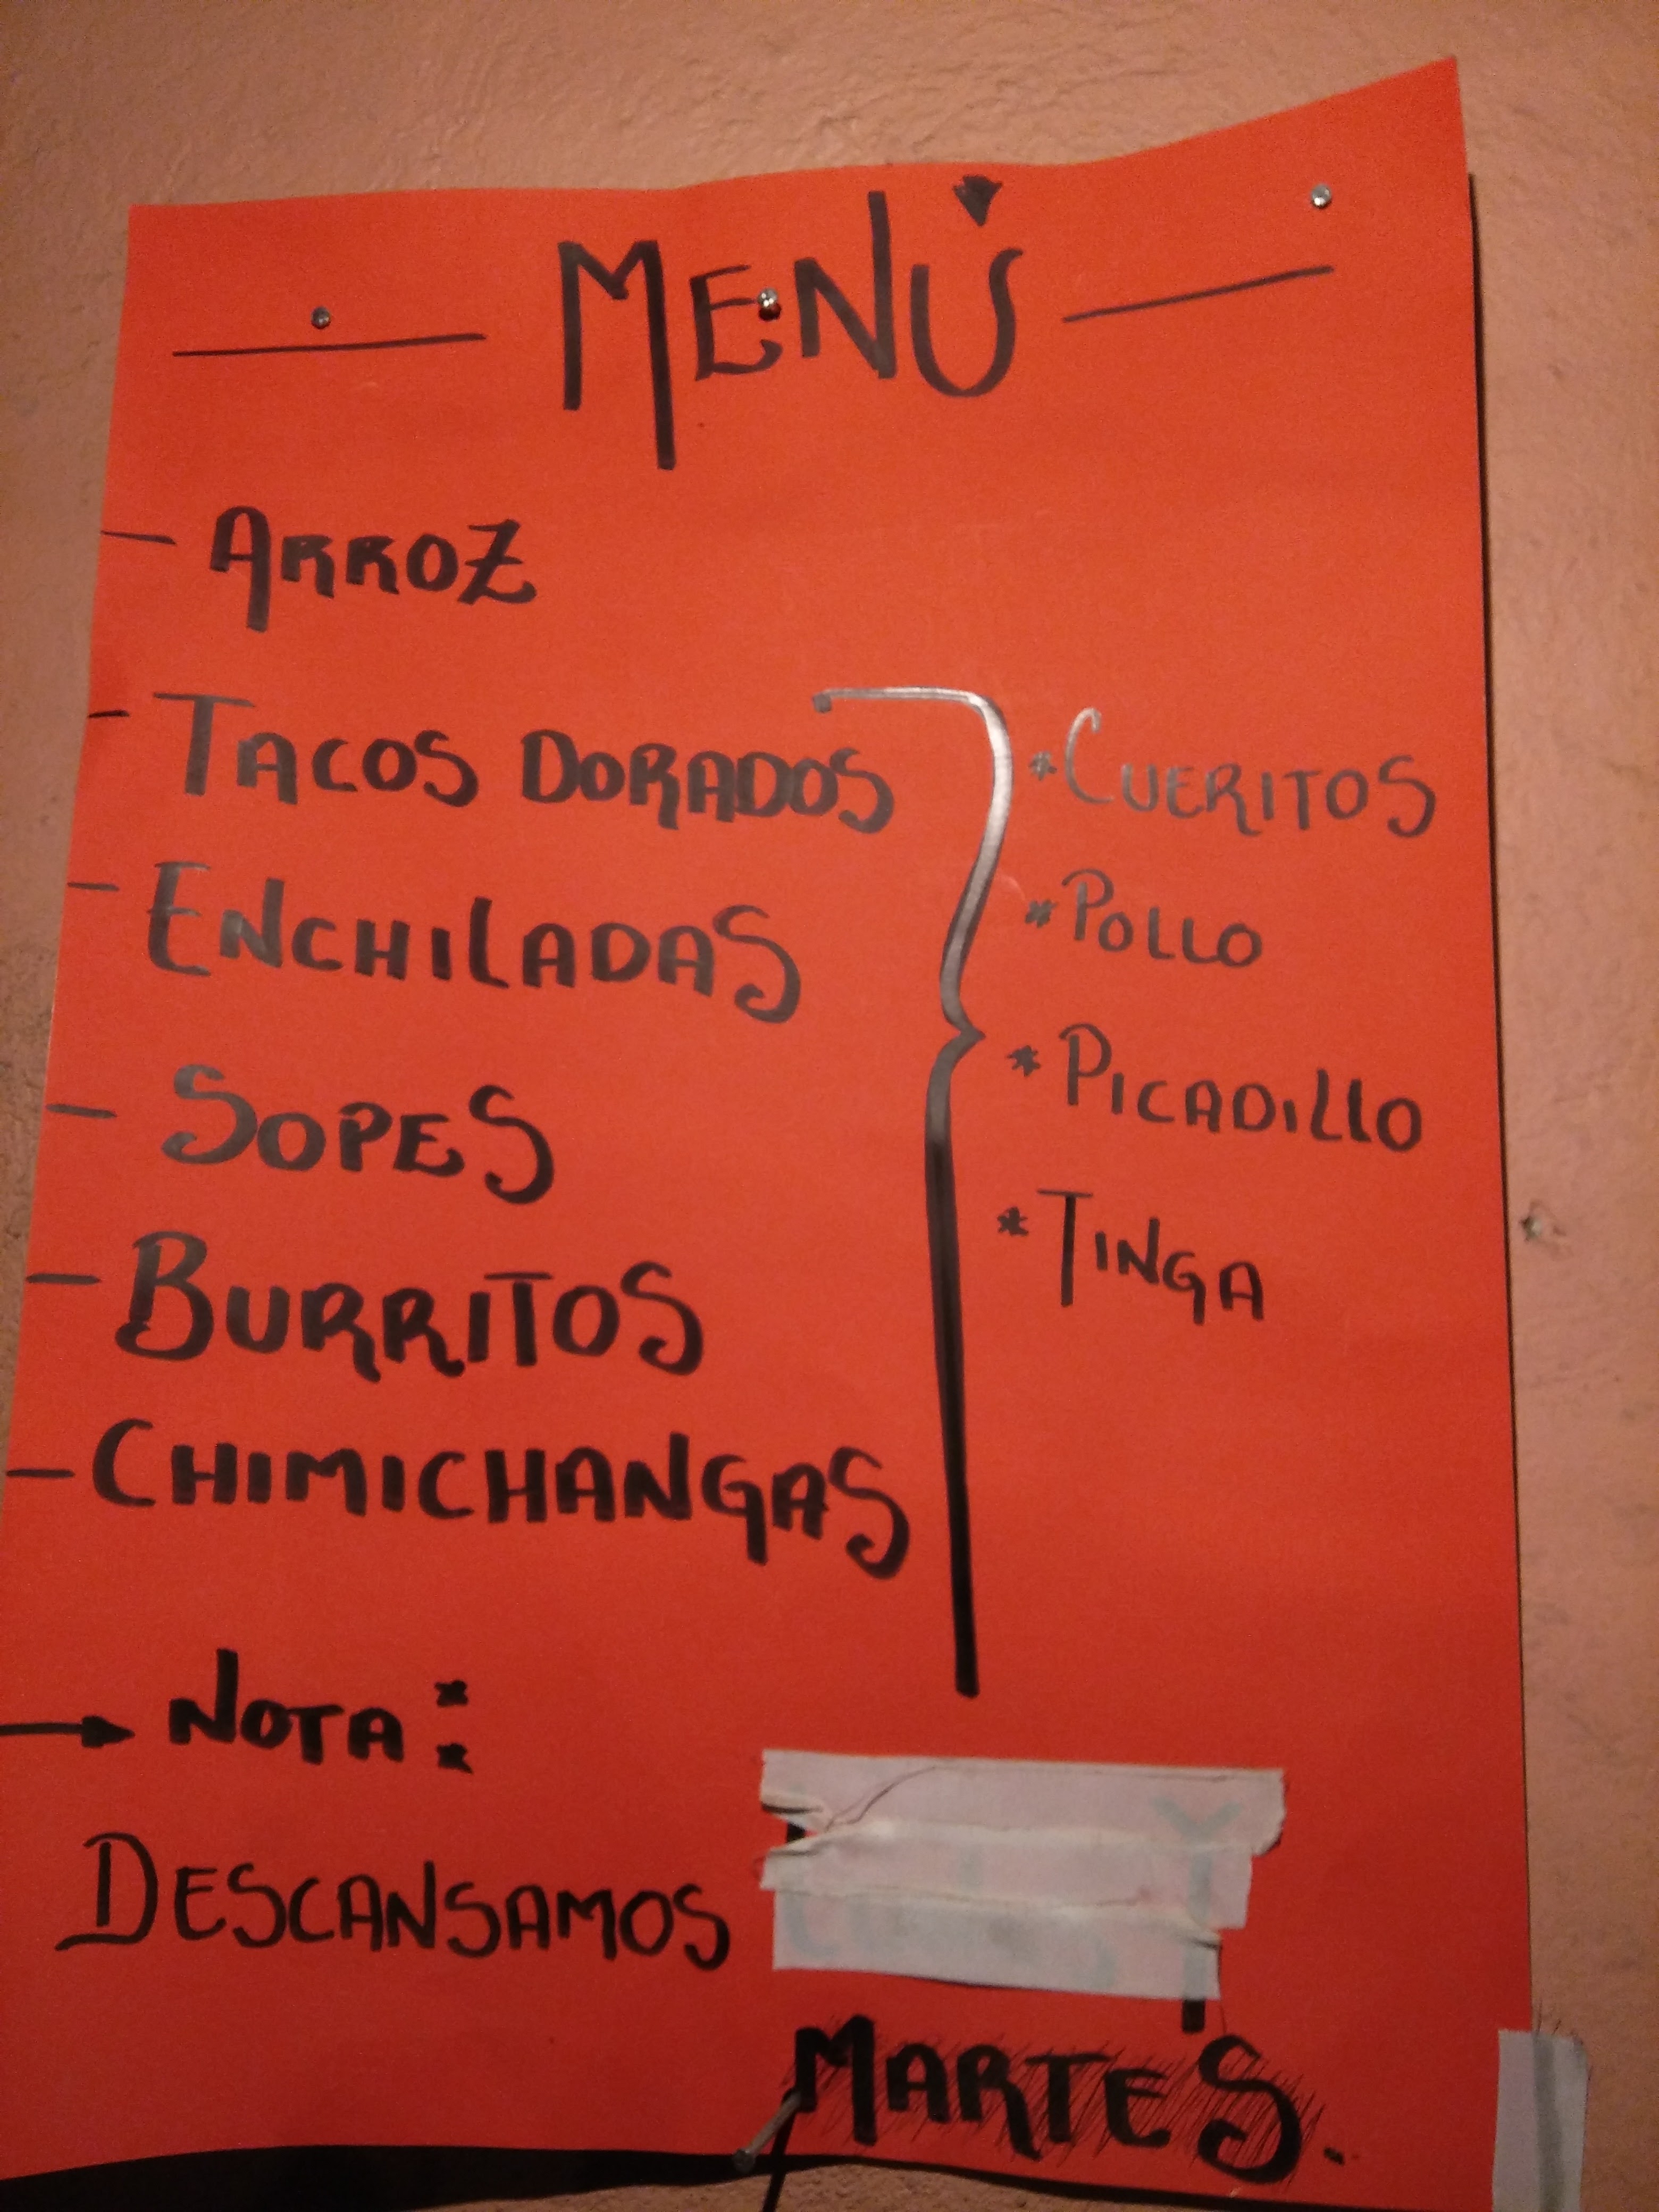 MENÚ
- ARROZ
- TACOS DORADOS
- ENCHILADAS
- SOPES
- BURRITOS
- CHIMICHANGAS
* CUERITOS
* POLLO
* PICADILLO
* TINGA
→ NOTA:
DESCANSAMOS
MARTES.